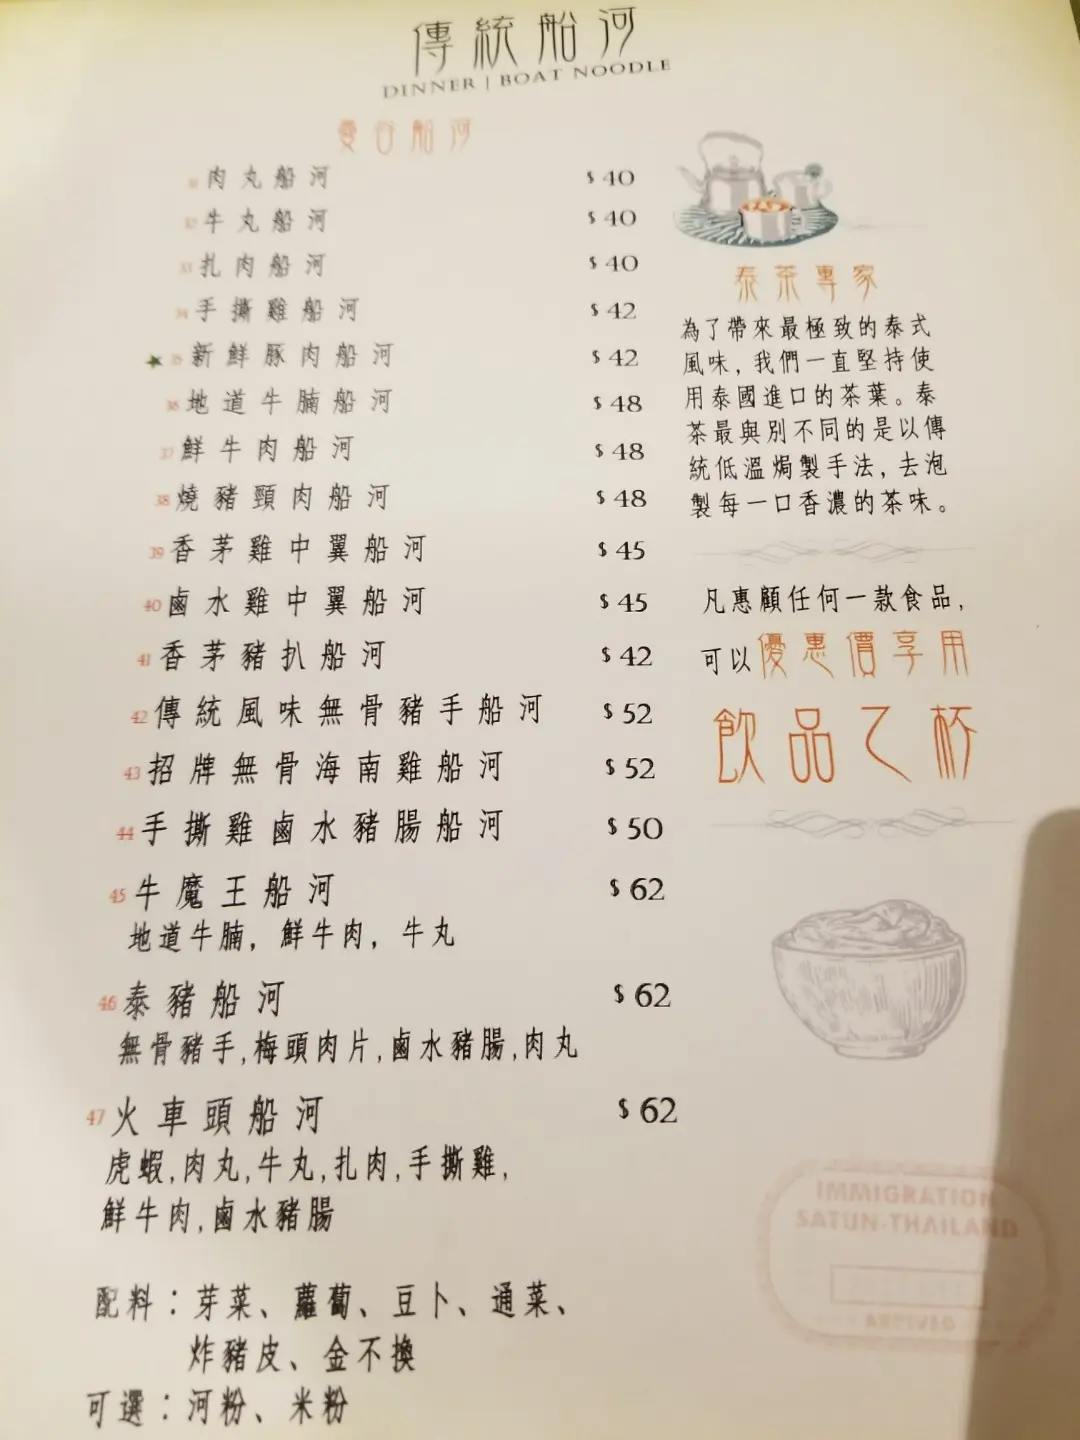 傳統船河
DINNER | BOAT NOODLE
曼谷船河
31 肉丸船河 $ 40
32 牛丸船河 $ 40
33 扎肉船河 $ 40
34 手撕雞船河 $ 42
35 新鮮豚肉船河 $ 42
36 地道牛腩船河 $ 48
37 鮮牛肉船河 $ 48
38 燒豬頸肉船河 $ 48
39 香茅雞中翼船河 $ 45
40 鹵水雞中翼船河 $ 45
41 香茅豬扒船河 $ 42
42 傳統風味無骨豬手船河 $ 52
43 招牌無骨海南雞船河 $ 52
44 手撕雞鹵水豬腸船河 $ 50
45 牛魔王船河 $ 62
地道牛腩，鮮牛肉，牛丸
46 泰豬船河 $ 62
無骨豬手,梅頭肉片,鹵水豬腸,肉丸
47 火車頭船河 $ 62
虎蝦,肉丸,牛丸,扎肉,手撕雞,
鮮牛肉,鹵水豬腸
配料：芽菜、蘿蔔、豆卜、通菜、
炸豬皮、金不換
可選：河粉、米粉
泰茶專家
為了帶來最極致的泰式
風味，我們一直堅持使
用泰國進口的茶葉。泰
茶最與別不同的是以傳
統低溫焗製手法，去泡
製每一口香濃的茶味。
凡惠顧任何一款食品，
可以優惠價享用
飲品乙杯
IMMIGRATION
SATUN-THAILAND
ARRIVED